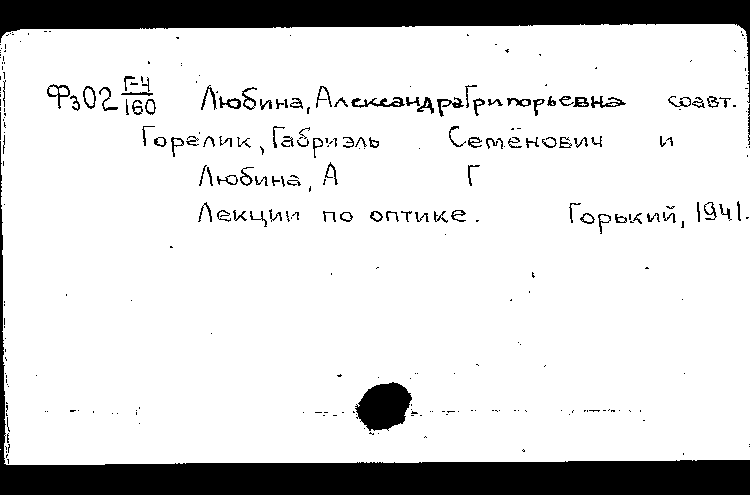 Фз02 Г-4/160 Любина, Александра Григорьевна соавт.
Горелик, Габриэль Семёнович и
Любина, А Г
Лекции по оптике. Горький, 1941.